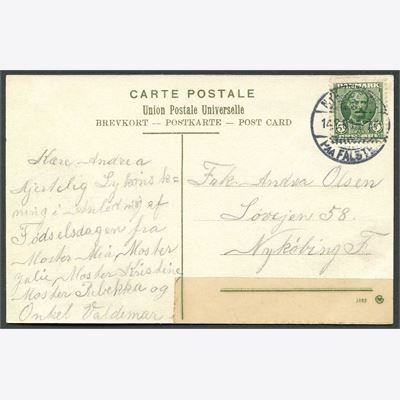 CARTE POSTALE
Union Postale Universelle
BREVKORT — POSTKARTE — POST CARD
DANMARK
5 5
14
PAA FALSTER
Kære Andrea
hjertelig Lykønsk=
ning i Anledning af
Fødselsdagen fra
Moster Mia, Moster
Julie, Moster Kristine
Moster Rebekka og
Onkel Valdemar
Frk. Andrea Olsen
Lovejen 58.
Nykøbing F.